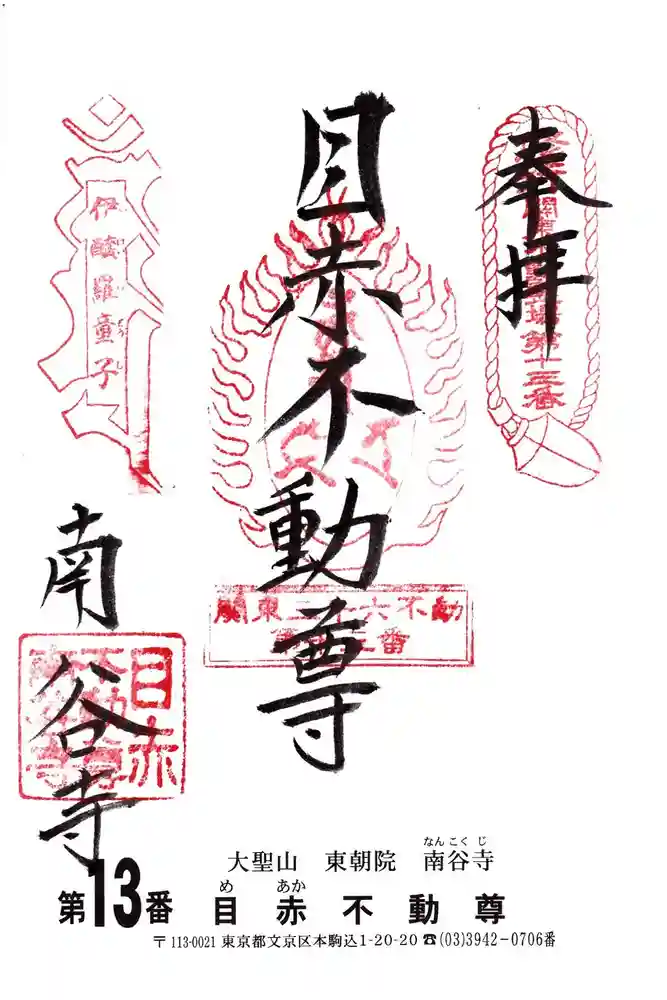 奉拝
第十三番
目赤不動尊
関東三十六不動
第十三番
伊醯羅童子
南谷寺
目赤
不動尊
南谷寺
なんこくじ
大聖山 東朝院 南谷寺
め あか
第13番 目赤不動尊
〒113-0021 東京都文京区本駒込1-20-20 ☎(03)3942-0706番